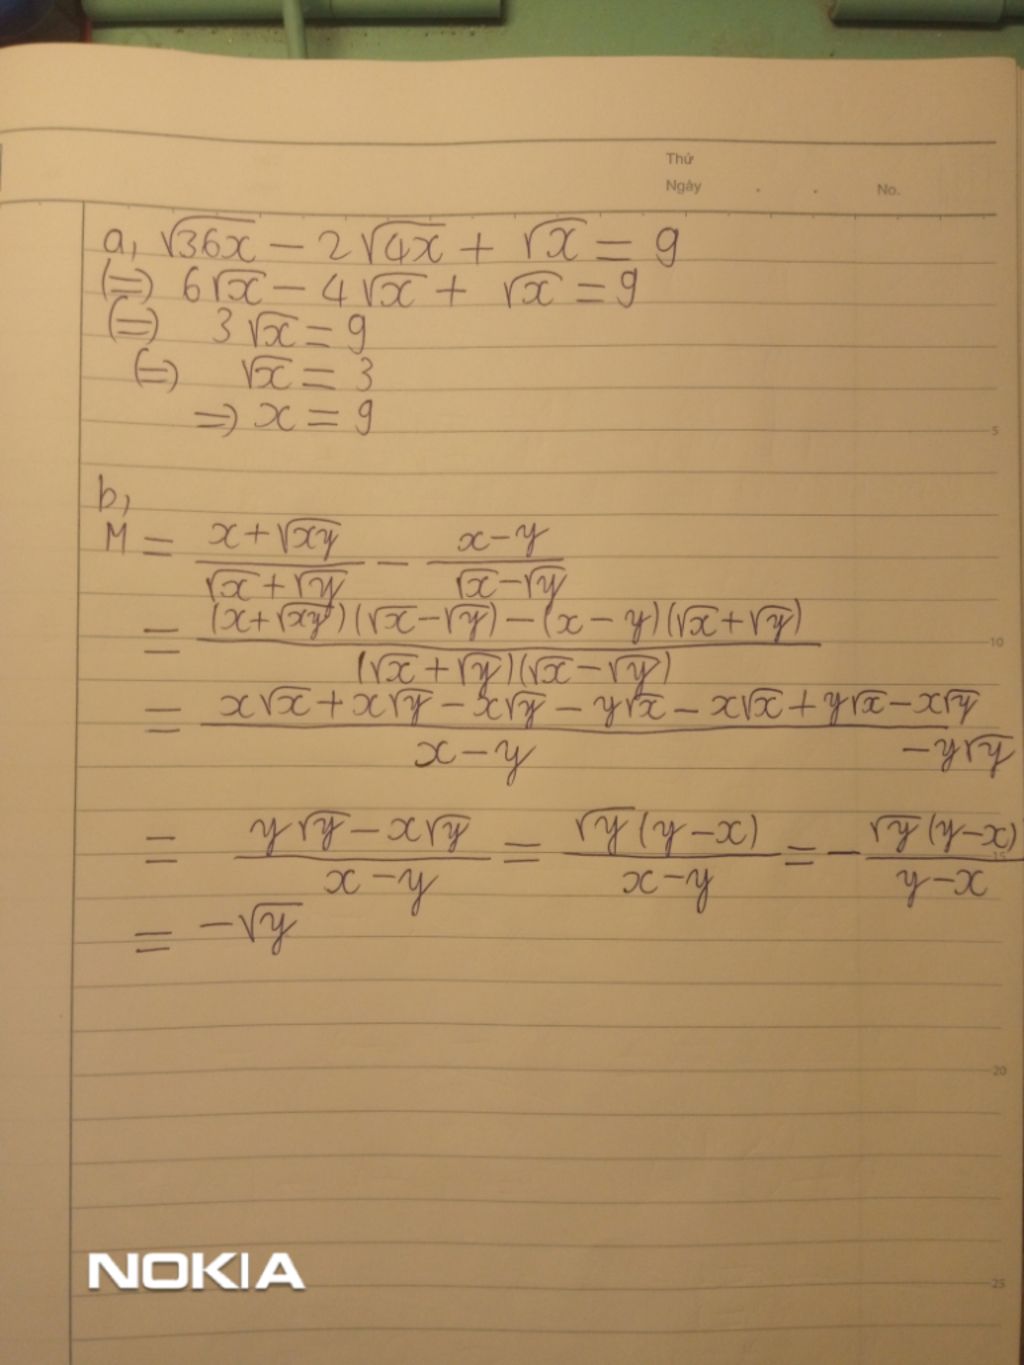 Thứ
Ngày . . No.
a, √36x − 2√4x + √x = 9
(=) 6√x − 4√x + √x = 9
(=) 3√x = 9
(=) √x = 3
=) x = 9
5
b,
M = (x+√xy)/(√x+√y) − (x−y)/(√x−√y)
= ((x+√xy)(√x−√y)−(x−y)(√x+√y))/((√x+√y)(√x−√y))
10
= (x√x+x√y−x√y−y√x−x√x+y√x−x√y−y√y)/(x−y)
= (y√y−x√y)/(x−y) = (√y(y−x))/(x−y) = −(√y(y−x))/(y−x)
15
= −√y
20
25
NOKIA